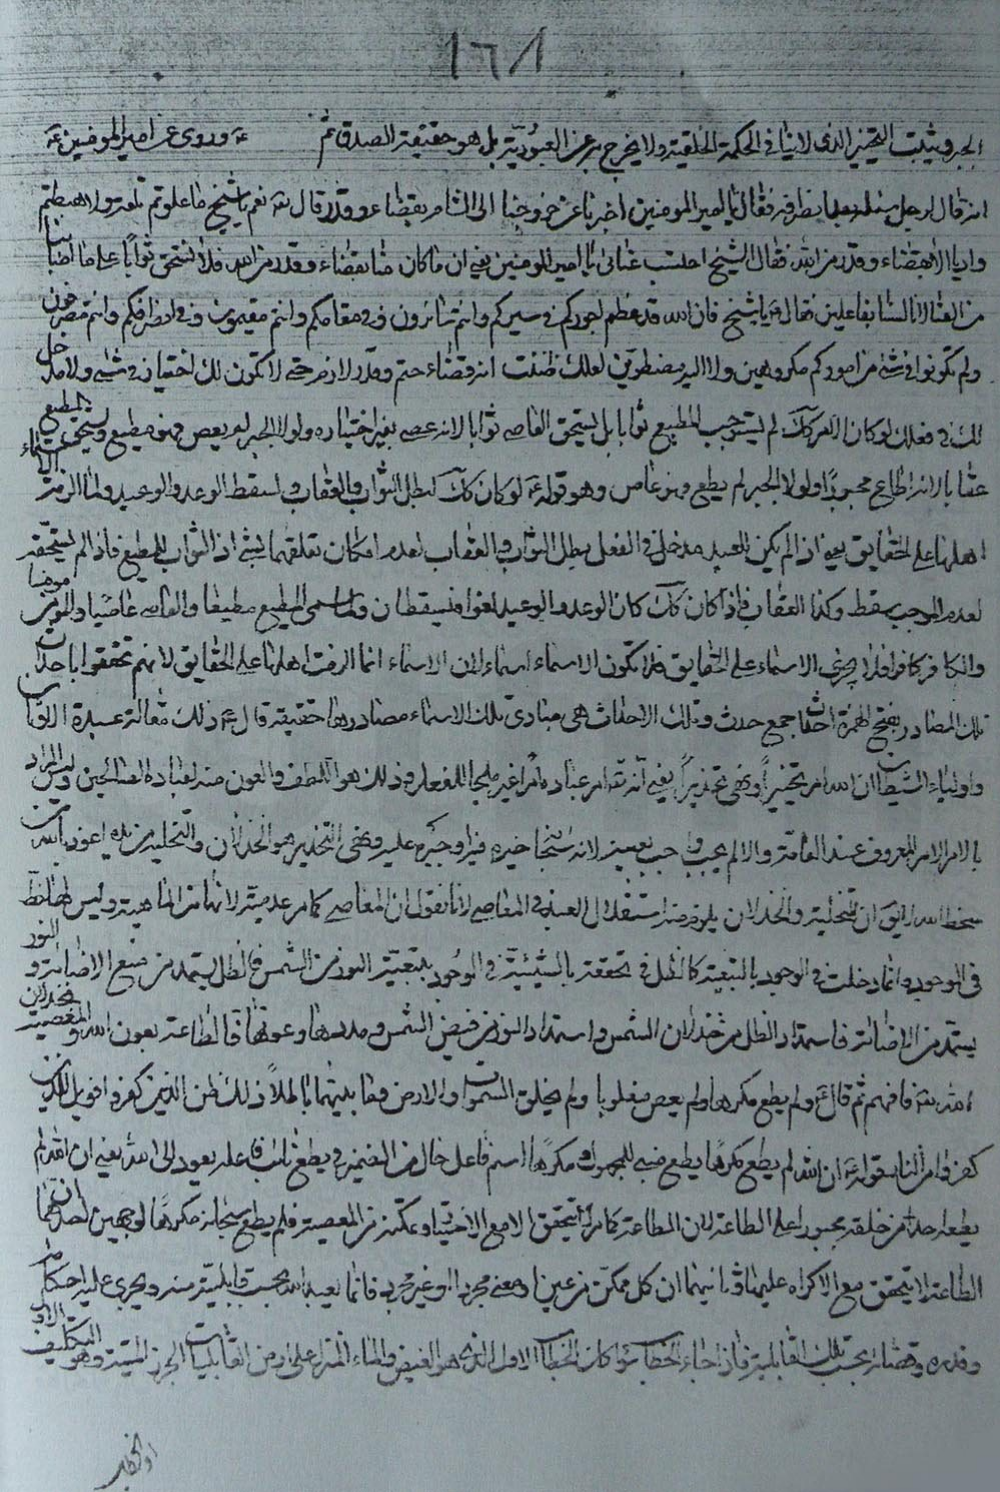 ١٦٨
الجبر ويثبت التخيير الذي لا ينافي الحكمة الخلقية ولا يخرج به عن العبودية بل هو حقيقة الصدق ثم وروى عن امير المؤمنين ع
انه قال لرجل سئله بعد انصرافه فقال يا امير المؤمنين اخبرنا عن خروجنا الى الشام بقضاء وقدر قال له نعم يا شيخ ما علوتم تلعة ولا هبطتم
واديا الا بقضاء وقدر من الله فقال الشيخ احتسب عنائي يا امير المؤمنين يعني ان ما كان منا بقضاء وقدر من الله فلا نستحق ثوابا على ما اصابنا
من العناء لانا لسنا بفاعلين فقال ع يا شيخ فان الله قد عظم اجوركم في مسيركم وانتم سائرون وفي مقامكم وانتم مقيمون وفي انصرافكم وانتم منصرفون
ولم تكونوا في شئ من اموركم مكرهين ولا اليه مضطرين لعلك ظننت انه قضاء حتم وقدر لازم حتى لا تكون لك اختيار في شئ ولا مدخل
لك في فعلك لو كان الامر كك لم يستوجب المطيع ثوابا بل يستحق العاصي ثوابا لانه عصى بغير اختياره ولولا الجبر لم يعص فهو مطيع ويستحق المطيع
عقابا لانه اطاع مجبورا ولولا الجبر لم يطع فهو عاص وهو قوله ع لو كان كك لبطل الثواب والعقاب ولسقط الوعد والوعيد ولما الزمت الاسماء
اهلها على الحقايق يعني اذا لم يكن للعبد مدخل في الفعل بطل الثواب والعقاب لعدم امكان تعلقهما بشئ اذ الثواب للمطيع فاذا لم يستحقه
لعدم الموجب سقط وكذا العقاب فاذا كان كك كان الوعد والوعيد لغوا فيسقطان ولما سمي المطيع مطيعا والعاصي عاصيا والمؤمن مؤمنا
والكافر كافرا فلا يجرى الاسماء على الحقايق فلا تكون الاسماء اسماء لان الاسماء انما الزمت اهلها على الحقايق لانهم تحققوا باحداث
تلك المصادر بفتح الهمزة احداث جمع حدث وتلك الاحداث هي مبادي تلك الاسماء مصادرها حقيقة قال ع ذلك مقالة عبدة الاوثان
واولياء الشيطان ان الله امر تخييرا ونهى تحذيرا يعني انه تعالى امر عباده امرا غير ملجأ للفعل وذلك هو اللطف والعون منه لعباده الصالحين وليس المراد
بالامر الامر المعروف عند العامة والا لم يجب واجب بعينه لانه
سخط الله لا يق ان التخلية والخذلان يلزم منه استقلال العبد في المعاصي لانا نقول ان المعاصي كما مر عدمية لانها من الماهية وليس لها حظ
في الوجود وانما دخلت في الوجود بالتبعية كالظل في تحققه بالشيئية في الوجود بتبعية النور من الشمس فالظل يستمد من منع الاضائة والنور
يستمد من الاضائة فاستمداد الظل من خذلان الشمس واستمداد النور من فيض الشمس ومددها وعونها فالطاعة بعون الله والمعصية بخذلان
الله تعالى فافهم ثم قال ع ولم يطع مكرها ولم يعص مغلوبا ولم يخلق السموات والارض وما بينهما باطلا ذلك ظن الذين كفروا فويل للذين
كفروا من النار بقوله ع ان الله لم يطع مكرها يطع مبني للمجهول ومكرها اسم فاعل حال من الضمير في يطع نائب فاعله يعود الى الله يعني ان الله لم
يطعه احد من خلقه مجبورا على الطاعة لان الطاعة كما مر لا يتحقق الا مع الاختيار وتمكنه من المعصية فلم يطع سبحانه مكرها لوجهين احدهما ان
الطاعة لا يتحقق مع الاكراه عليها وثانيهما ان كل ممكن من عين او معنى مجرد او غير مجرد فانما يعبد الله بحسب قابليته منه ويجرى عليه احكام
وقدره وقضائه بحسب تلك القابلية فاذا جاء الخطاب سواء كان الخطاب الاول الذي هو الفيض والماء المنزل على ارض القابليات الجرز الميتة وهو التكليف
او الخطاب